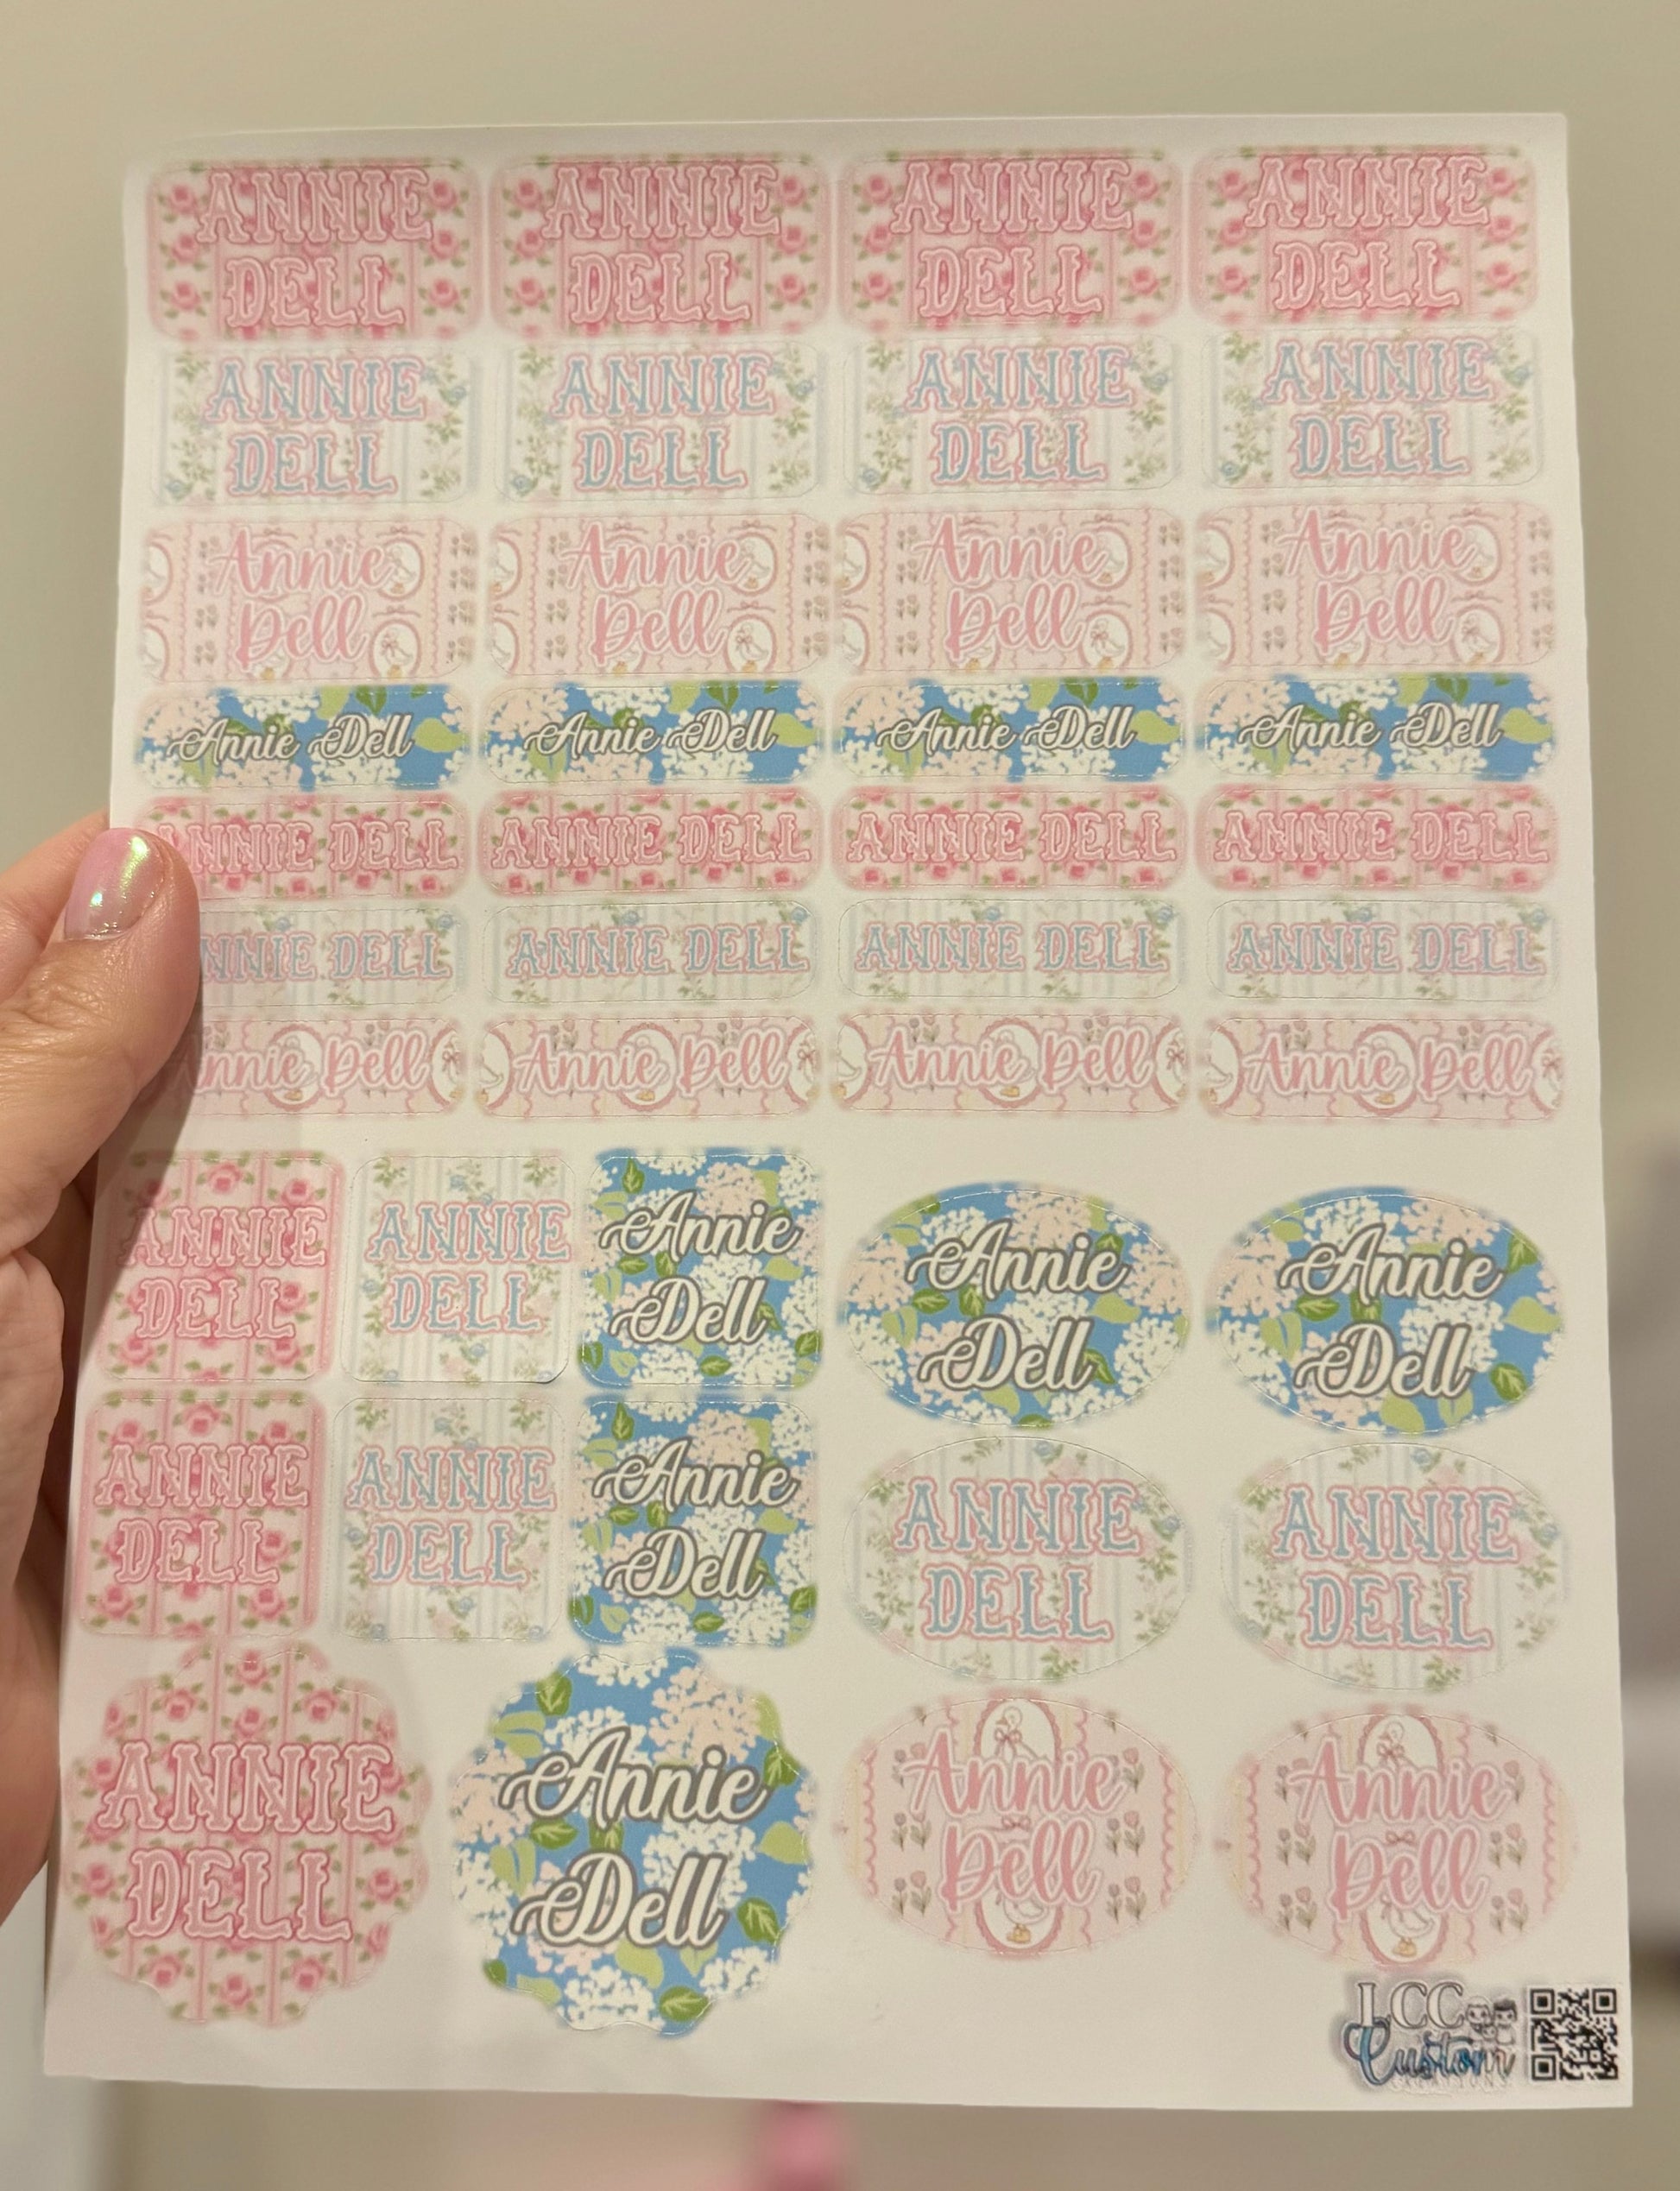 ANNIE
DELL
ANNIE
DELL
ANNIE
DELL
ANNIE
DELL
ANNIE
DELL
ANNIE
DELL
ANNIE
DELL
ANNIE
DELL
Annie
Dell
Annie
Dell
Annie
Dell
Annie
Dell
Annie Dell
Annie Dell
Annie Dell
Annie Dell
NNIE DELL
ANNIE DELL
ANNIE DELL
ANNIE DELL
NNIE DELL
ANNIE DELL
ANNIE DELL
ANNIE DELL
nnie Dell
Annie Dell
Annie Dell
Annie Dell
ANNIE
DELL
ANNIE
DELL
Annie
Dell
Annie
Dell
Annie
Dell
ANNIE
DELL
ANNIE
DELL
Annie
Dell
ANNIE
DELL
ANNIE
DELL
ANNIE
DELL
Annie
Dell
Annie
Dell
Annie
Dell
LCC
Custom